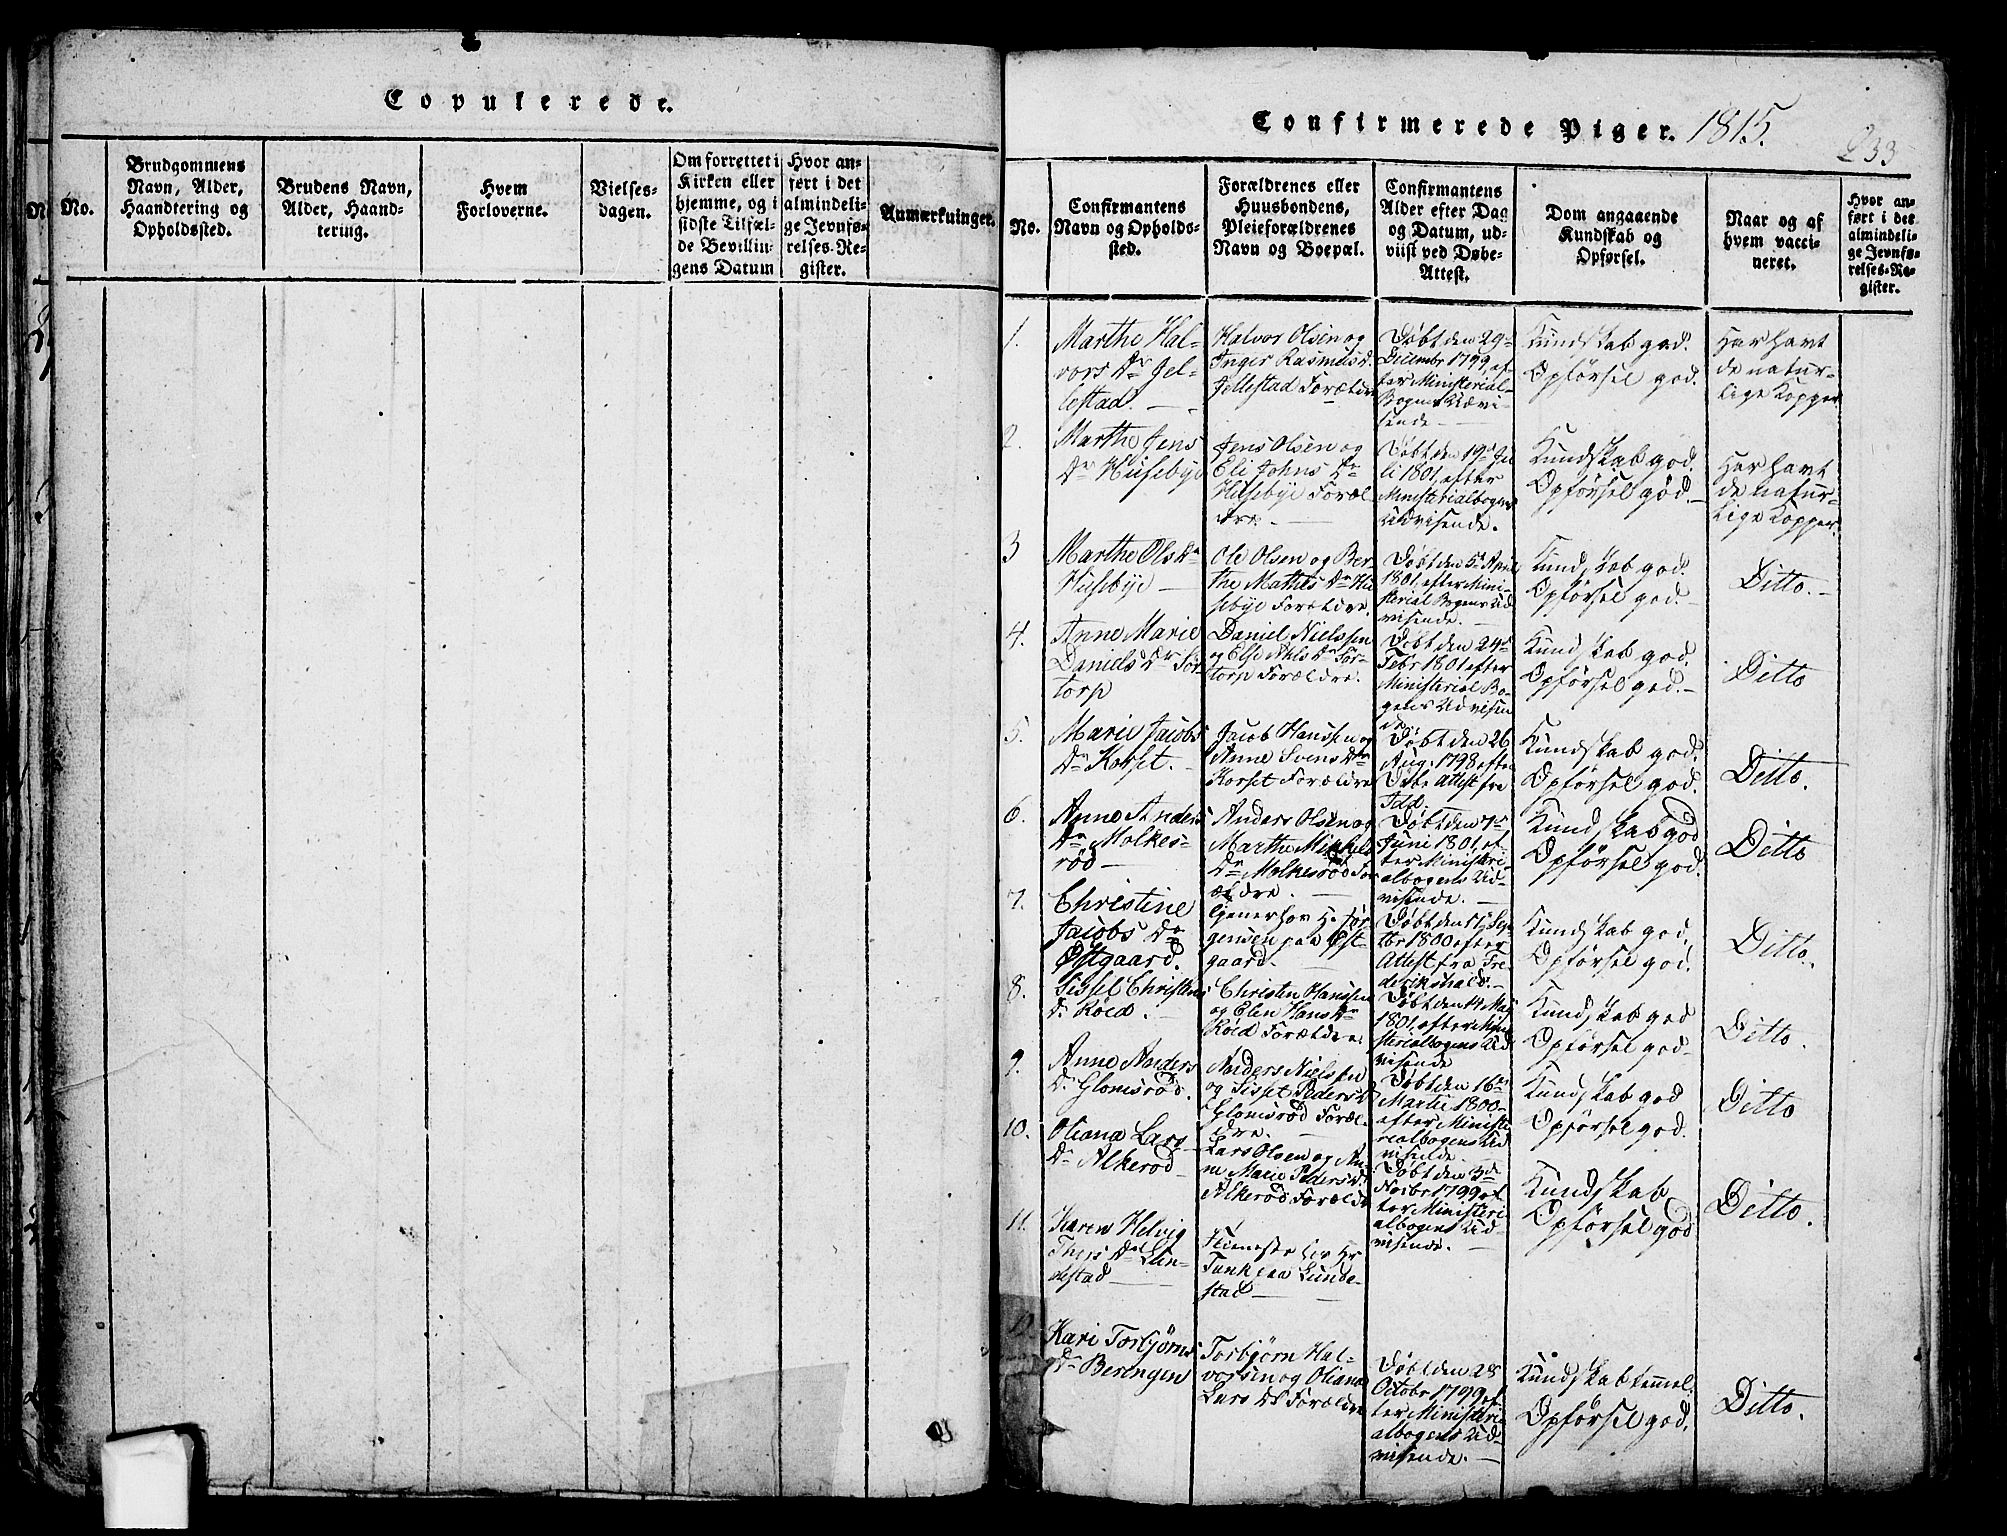 Copulerede.
No.
Brudgommens
Navn, Alder,
Haandtering og
Opholdssted.
Brudens Navn,
Alder, Haand-
tering.
Hvem
Forloverne.
Vielses-
dagen.
Om forrettet i
Kirken eller
hjemme, og i
sidste Tilfæl-
de Bevillin-
gens Datum
Hvor an-
ført i det
almindeli-
ge Jevnfø-
relses-Re-
gister.
Anmærkninger.
Confirmerede Piger. 1815.
233
No.
Confirmantens
Navn og Opholds-
sted.
Forældrenes eller
Huusbondens,
Pleieforældrenes
Navn og Boepæl.
Confirmantens
Alder efter Dag
og Datum, ud-
viist ved Døbe-
Attest.
Dom angaaende
Kundskab og
Opførsel.
Naar og af
hvem vacci-
neret.
Hvor an-
ført i det
almindeli-
ge Jevnfø-
relses-Re-
gister.
1.
Marthe Hal-
vors Dr Jel-
lestad.
Halvor Olsen og
Inger Rasmus D.
Jellestad Forældre
Døbt den 29de
Decembr 1799, ef-
ter Ministerial-
Bogens Udvi-
sende
Kundskab god.
Opførsel god.
Har havt
de natur-
lige Kopper
2.
Marthe Jens
Dr Husebye
Jens Olsen og
Eli Johns Dr
Husebye Foræl-
dre
Døbt den 19de Ju-
li 1801, efter
Ministerialbogens
Udvisende.
Kundskab god.
Opførsel god.
Har havt
de natur-
lige Kopper.
3
Marthe Ols Dr
Husebye
Ole Olsen og Ber-
the Mathis Dr Hu-
sebye Forældre.
Døbt den 5te April
1801, efter Mini-
sterial Bogens Ud-
visende.
Kundskab god.
Opførsel god.
Ditto.
4.
Anne Marie
Daniels Dr Tor-
torp
Daniel Nielssen
og Else Ahls Dr Tor-
torp Forældre.
Døbt den 24de
Febr 1801 efter
Ministerial Bo-
gens Udvisen-
de
Kundskab god.
Opførsel god.
Ditto
5.
Marie Jacobs
Dr Korset.
Jacob Hanssen og
Anne Svens Dr
Korset Forældre
Døbt den 26
Aug. 1798 efter
Døbe Attest fra
Idd.
Kundskab god.
Opførsel god.
Ditto.
6.
Anne Anders
Dr Molkes-
rød
Anders Olsen og
Marthe Mickels
Dr Molkesrød For-
ældre.
Døbt den 7de
Juni 1801, ef-
ter Ministeri-
albogens Ud-
visende.
Kundskab god
Opførsel god.
Ditto
7.
Christine
Jacobs Dr
Østgaard.
tjener hos Hr Jør-
gensen paa Øst-
gaard.
Døbt den 17 Sep-
tbr 1800 efter
Attest fra Fre-
derikshald.
Kundskab god,
Opførsel god.
Ditto.
8.
Sissel Christens
Dr Røed.
Christen Hanssen
og Elen Hans Dr
Røed Forældre
Døbt den 14 Maj
1801, efter Mini-
sterialbogens Ud-
visende
Kundskab god
Opførsel god
Ditto.
9.
Anne Anders
Dr Glomsrød.
Anders Nielssen
og Sissel Peders D
Glomsrød Foræl-
dre.
Døbt den 16de
Martii 1800
efter Ministe-
rialbogens Ud-
visende.
Kundskab god
Opførsel god.
Ditto
10.
Oliana Lars
Dr Alkerød
Lars Olsen og An-
ne Marie Peders D.
Alkerød Forældre
Døbt den 3de
Novbr 1799 ef-
ter Ministeri-
albogens Ud-
visende.
Kundskab
Opførsel god
Ditto.
11.
Karen Helvig
Thers Dr Lun-
destad
Tieneste hos Hr
Tank paa Lunde-
stad
12.
Kari Torbjørns
Dr Berengen
Torbjørn Hal-
vorsen og Oliana
Lars Dr Forældre
Døbt den 28
Octobr 1799 ef-
ter Ministeri-
albogens Ud-
visende.
Kundskab temmel.
Opførsel god.
Ditto.